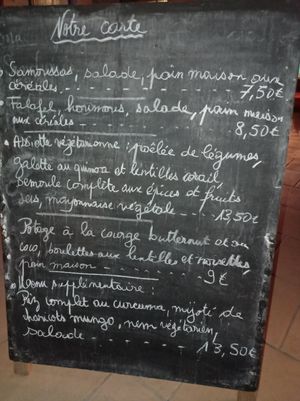 Notre carte
• Samoussas, salade, pain maison aux
céréales - - - - - - - - - - - 7,50€
• Falafel, houmous, salade, pain maison
aux céréales - - - - - - - - - - 8,50€
• Assiette végétarienne : poêlée de légumes,
galette au quinoa et lentilles corail,
semoule complète aux épices et fruits
secs, mayonnaise végétale - - - - 13,50€
Potage à la courge butternut et au
coco, boulettes aux lentilles et noisettes,
pain maison - - - - - - - 9€
supplémentaire :
Riz complet au curcuma, mijoté de
haricots mungo, nem végétarien,
salade - - - - - - - - - 13,50€